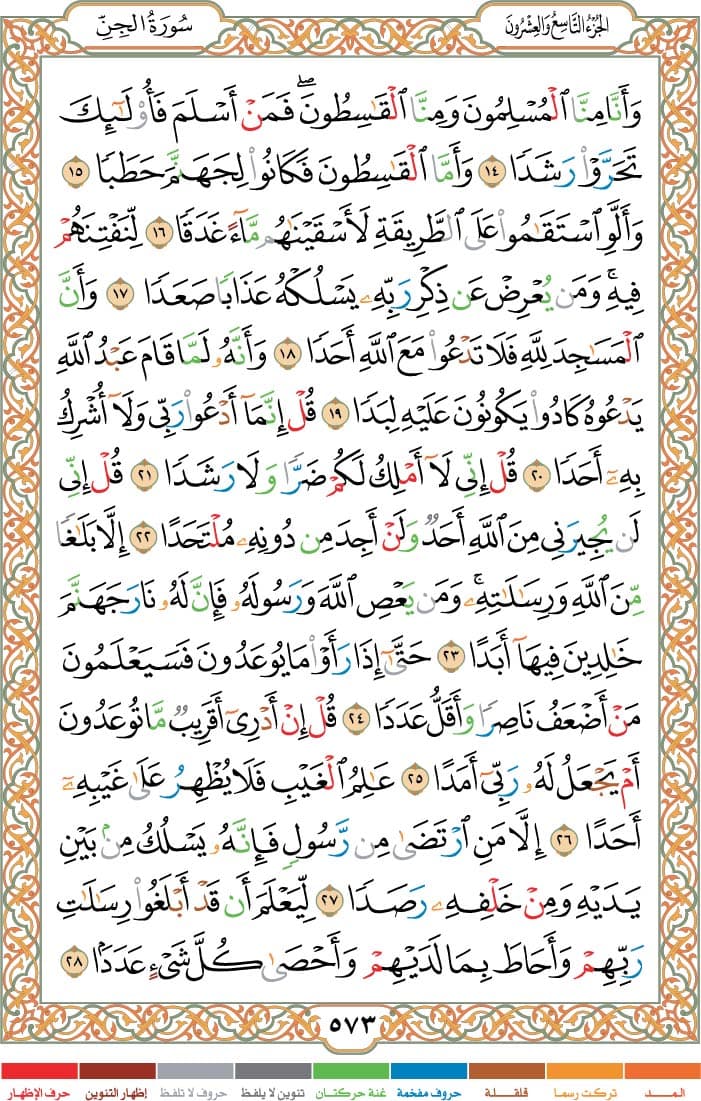 الجُزْءُ التَّاسِعُ وَالعِشْرُونَ
سُورَةُ الجِنِّ
وَأَنَّا مِنَّا ٱلْمُسْلِمُونَ وَمِنَّا ٱلْقَٰسِطُونَۖ فَمَنْ أَسْلَمَ فَأُو۟لَٰٓئِكَ
تَحَرَّوْا۟ رَشَدًا ١٤ وَأَمَّا ٱلْقَٰسِطُونَ فَكَانُوا۟ لِجَهَنَّمَ حَطَبًا ١٥
وَأَلَّوِ ٱسْتَقَٰمُوا۟ عَلَى ٱلطَّرِيقَةِ لَأَسْقَيْنَٰهُم مَّآءً غَدَقًا ١٦ لِّنَفْتِنَهُمْ
فِيهِۚ وَمَن يُعْرِضْ عَن ذِكْرِ رَبِّهِۦ يَسْلُكْهُ عَذَابًا صَعَدًا ١٧ وَأَنَّ
ٱلْمَسَٰجِدَ لِلَّهِ فَلَا تَدْعُوا۟ مَعَ ٱللَّهِ أَحَدًا ١٨ وَأَنَّهُۥ لَمَّا قَامَ عَبْدُ ٱللَّهِ
يَدْعُوهُ كَادُوا۟ يَكُونُونَ عَلَيْهِ لِبَدًا ١٩ قُلْ إِنَّمَآ أَدْعُوا۟ رَبِّى وَلَآ أُشْرِكُ
بِهِۦٓ أَحَدًا ٢٠ قُلْ إِنِّى لَآ أَمْلِكُ لَكُمْ ضَرًّا وَلَا رَشَدًا ٢١ قُلْ إِنِّى
لَن يُجِيرَنِى مِنَ ٱللَّهِ أَحَدٌ وَلَنْ أَجِدَ مِن دُونِهِۦ مُلْتَحَدًا ٢٢ إِلَّا بَلَٰغًا
مِّنَ ٱللَّهِ وَرِسَٰلَٰتِهِۦۚ وَمَن يَعْصِ ٱللَّهَ وَرَسُولَهُۥ فَإِنَّ لَهُۥ نَارَ جَهَنَّمَ
خَٰلِدِينَ فِيهَآ أَبَدًا ٢٣ حَتَّىٰٓ إِذَا رَأَوْا۟ مَا يُوعَدُونَ فَسَيَعْلَمُونَ
مَنْ أَضْعَفُ نَاصِرًا وَأَقَلُّ عَدَدًا ٢٤ قُلْ إِنْ أَدْرِىٓ أَقَرِيبٌ مَّا تُوعَدُونَ
أَمْ يَجْعَلُ لَهُۥ رَبِّىٓ أَمَدًا ٢٥ عَٰلِمُ ٱلْغَيْبِ فَلَا يُظْهِرُ عَلَىٰ غَيْبِهِۦٓ
أَحَدًا ٢٦ إِلَّا مَنِ ٱرْتَضَىٰ مِن رَّسُولٍ فَإِنَّهُۥ يَسْلُكُ مِنۢ بَيْنِ
يَدَيْهِ وَمِنْ خَلْفِهِۦ رَصَدًا ٢٧ لِّيَعْلَمَ أَن قَدْ أَبْلَغُوا۟ رِسَٰلَٰتِ
رَبِّهِمْ وَأَحَاطَ بِمَا لَدَيْهِمْ وَأَحْصَىٰ كُلَّ شَىْءٍ عَدَدًۢا ٢٨
٥٧٣
المـــد تركت رسما قلقلة حروف مفخمة غنة حركتان تنوين لا يلفظ حروف لا تلفظ إظهار التنوين حرف الإظهار